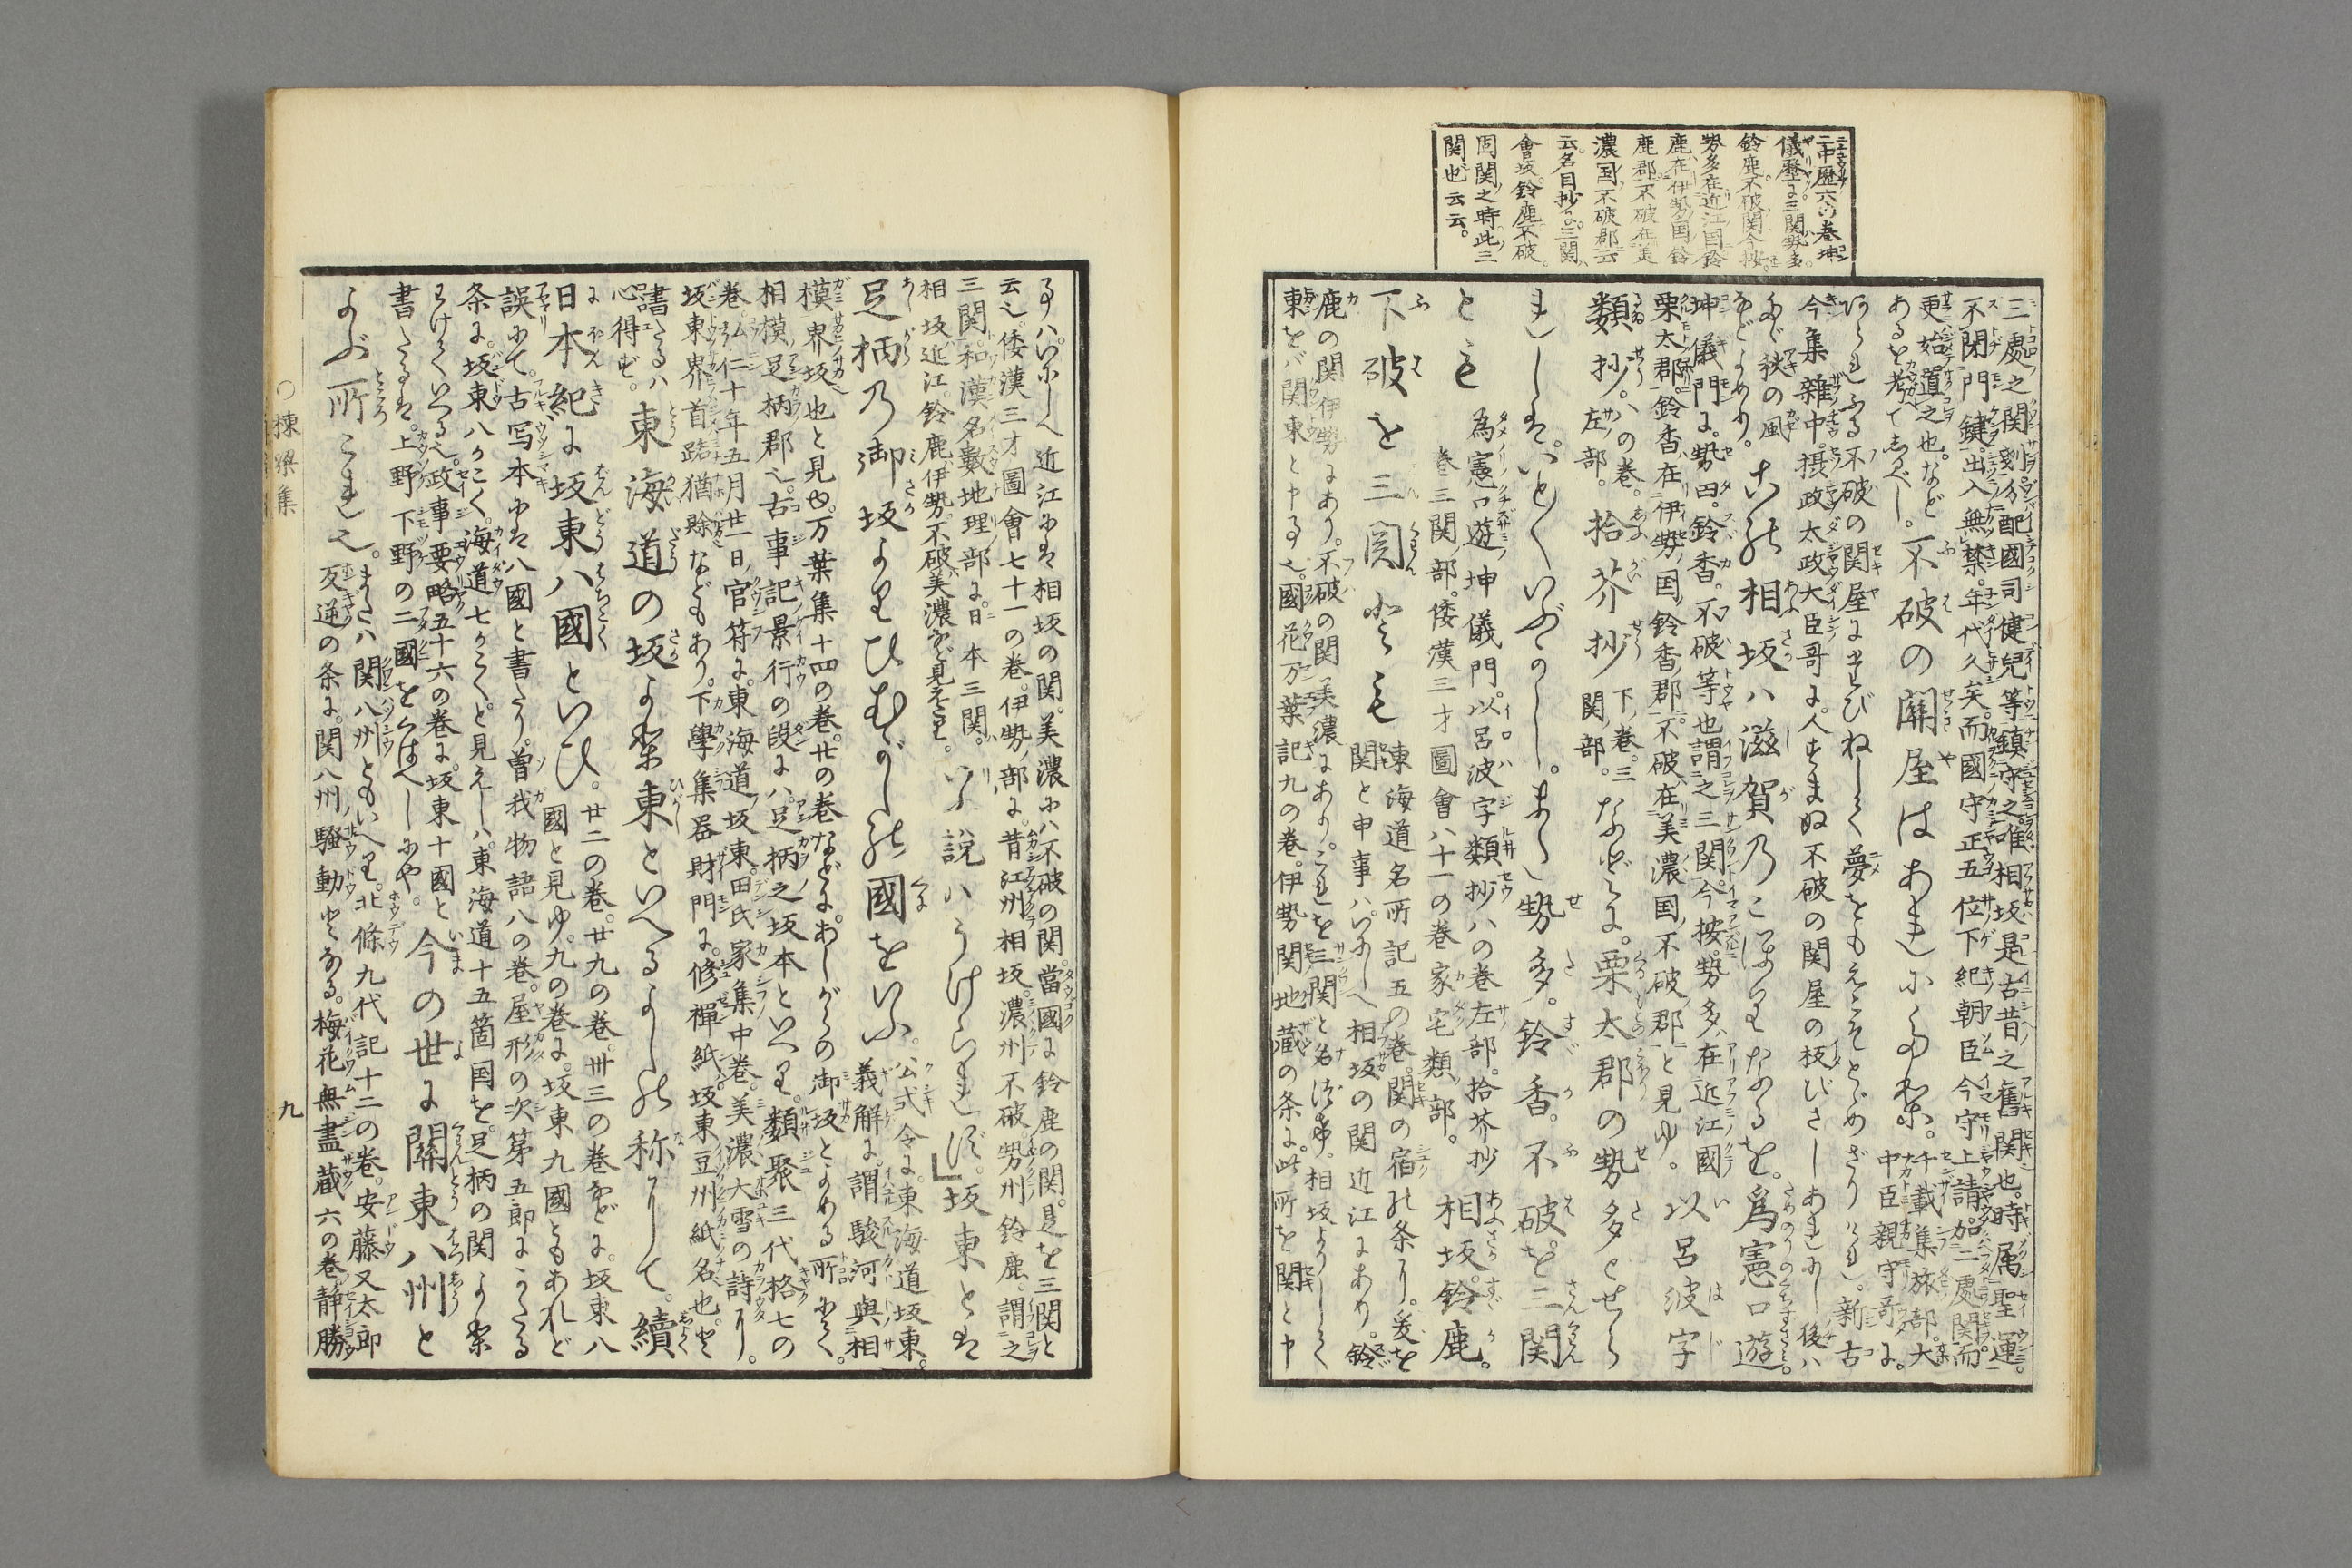 二中歴六の巻坤
儀歴に三関勢多
鈴鹿不破関今按
勢多在近江国鈴
鹿在伊勢国鈴
鹿郡不破在美
濃国不破郡云
云名目抄に三関
會坂鈴鹿不破
固関之時此三
関也云云。
三處之関剗分配國司健兒等鎮守之。唯相坂是古昔之舊関也。時属聖運。
不閉門鍵。出入無禁。年代久矣。而國守正五位下紀朝臣今守上請。加二處関。而
更始置之也。など
あるを考て しるべし。不破の關屋はあれにのみ。千載集旅部。大
中臣親守哥に。
ふる不破の関屋に びねしく夢をもえこそとゞめざりけれ。新古
今集雜中。摂政太政大臣哥に。人すまぬ不破の関屋の板びさしあれにし後ハ
たゞ秋の風
などよめり。 相坂ハ滋賀乃こほりなるを。爲憲口遊
坤儀門に。勢田。鈴香。不破等也。謂之三関。今按。勢多在近江國
栗太郡。鈴香在伊勢国鈴香郡。不破在美濃国不破郡と見ゆ。以呂波字
類抄。八の巻。
左部。拾芥抄下巻。三
関部。などに。栗太郡の勢多とせら
れしは。いといぶかし。まし勢多。鈴香。不破を三関
とも為憲口遊坤儀門。以呂波字類抄八の巻左部。拾芥抄
巻三関部。倭漢三才圖會八十一の巻家宅類部。相坂。鈴鹿。
不破を三関とも東海道名所記五の巻。関の宿の条に。爰を
関と申事ハいにしへ相坂の関近江にあり。鈴
鹿の関伊勢にあり。不破の関美濃にあり。これを三関と名付。相坂よりして
東をバ関東と申す也。國花万葉記九の巻。伊勢関地蔵の条に。此所を関と申
事ハいにしへ近江には相坂の関。美濃にハ不破の関。當國に鈴鹿の関。是を三関と
云也。倭漢三才圖會七十一の巻。伊勢部に。昔江州相坂。濃州不破。勢州鈴鹿。謂之
三関。和漢名數地理部に。日本三関。
相坂近江。鈴鹿伊勢。不破美濃など見えたり。いふ説ハうけられず。坂東とは
足柄乃御坂よりひむがしの國をいふ。公式令に。東海道坂東。
義解に。謂駿河與相
模界坂也と見ゆ。万葉集十四の巻。廿の巻などに。あしがらの御坂とよめる所にて。
相模足柄郡也。古事記景行の段にハ。足柄之坂本といへり。類聚三代格七の
巻。弘仁十年五月廿一日官符に。東海道坂東。田氏家集中巻。美濃大雪の詩に。
坂東界首路猶賖などもあり。下學集器財門に。修禪紙坂東豆州紙名也。と
書たるハ
心得ず。東海道の坂より東といへるよしの称にして。續
日本紀に坂東八國といひ。廿二の巻。廿九の巻。卅三の巻などに。坂東八
國と見ゆ。九の巻に。坂東九國ともあれど
誤にて。古写本には八國と書たり。曽我物語八の巻。屋形の次第五郎にかたる
条に。坂東八かこく。海道七かこく。と見えしハ。東海道十五箇国を。足柄の関より
わけていへる也。政事要略五十六の巻に。坂東十國と
書たるは。上野下野の二國をくはへしにや。今の世に關東八州と
よぶ所これ也。または関八州ともいへり。北條九代記十二の巻。安藤又太郎
反逆の条に。関八州騒動とある。梅花無盡蔵六の巻静勝
○棟梁集
九